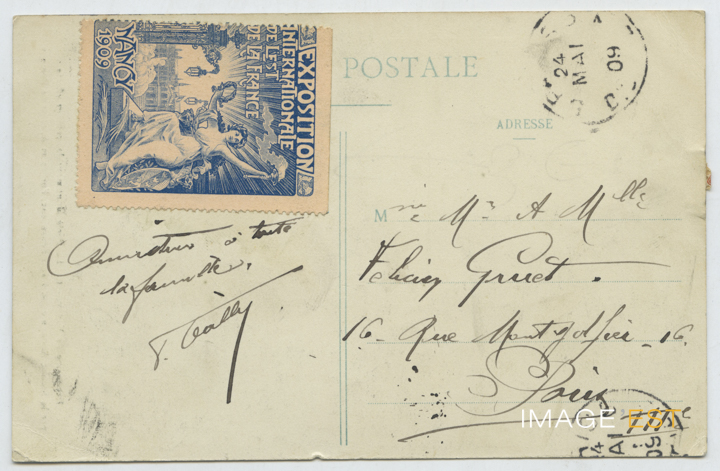 EXPOSITION
INTERNATIONALE
DE L'EST
DE LA FRANCE
NANCY
1909
POSTALE
ADRESSE
24
MAI
09
à toute
la famille.
Mme Mr & Mlle
Gruet.
16 - Rue Montgolfier - 16
Paris
IMAGE EST
24
09